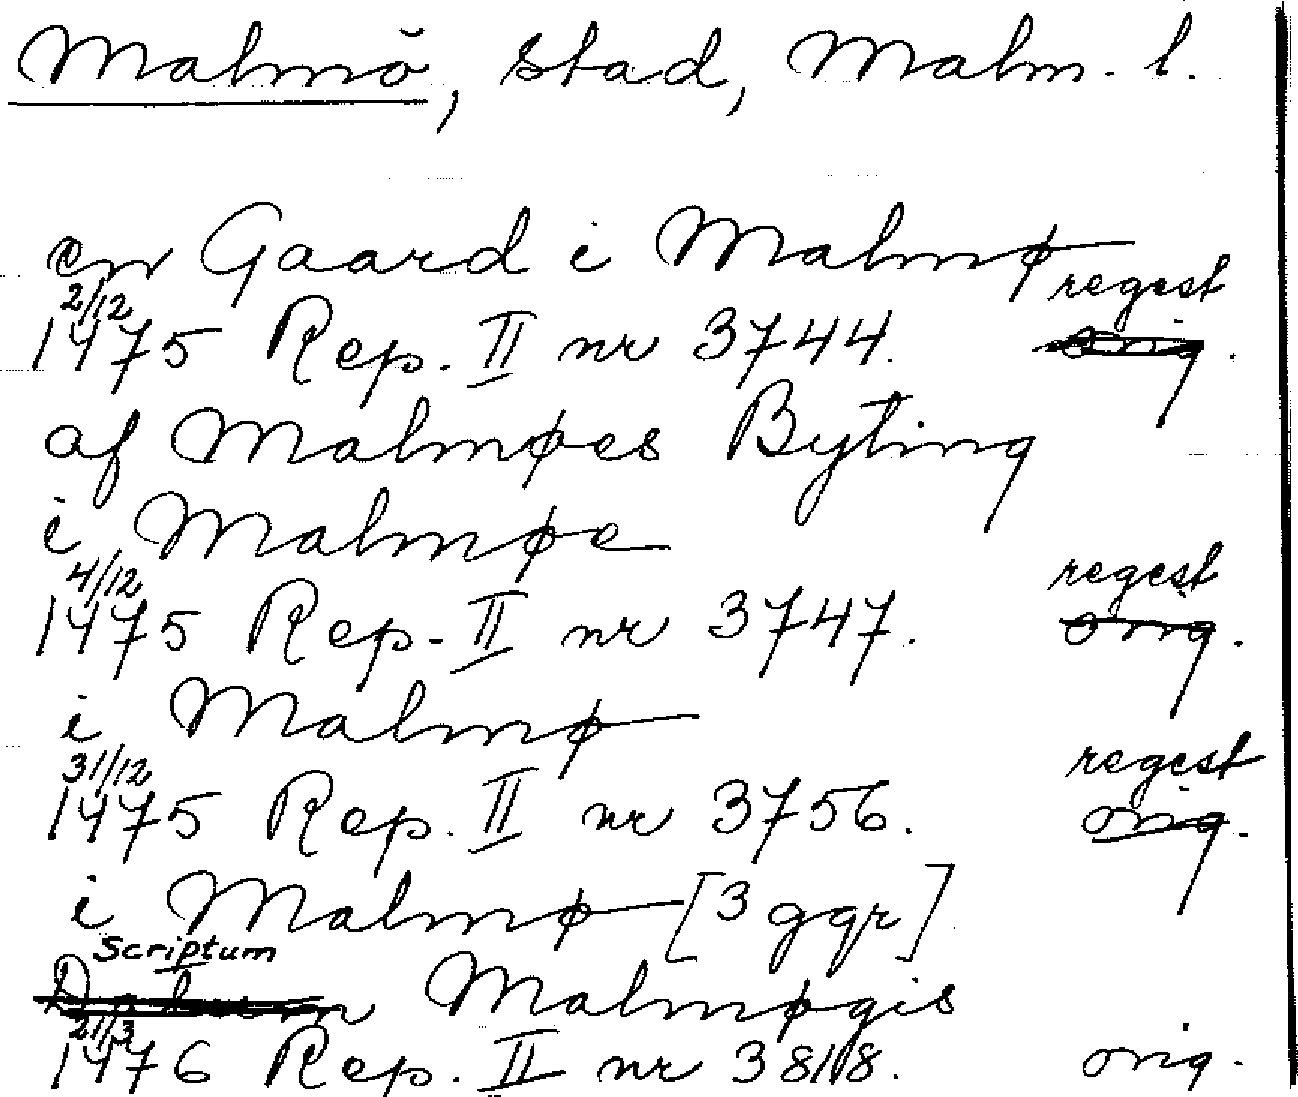 Malmö, stad, Malm. l.
en Gaard i Malmø
2/12 regest
1475 Rep. II nr 3744. orig.
af Malmøes Byting
i Malmøe
4/12 regest
1475 Rep. II nr 3747. orig.
i Malmø
31/12 regest
1475 Rep. II nr 3756. orig.
i Malmø [3 ggr]
Scriptum
Datum Malmøgis
21/3
1476 Rep. II nr 3818. orig.